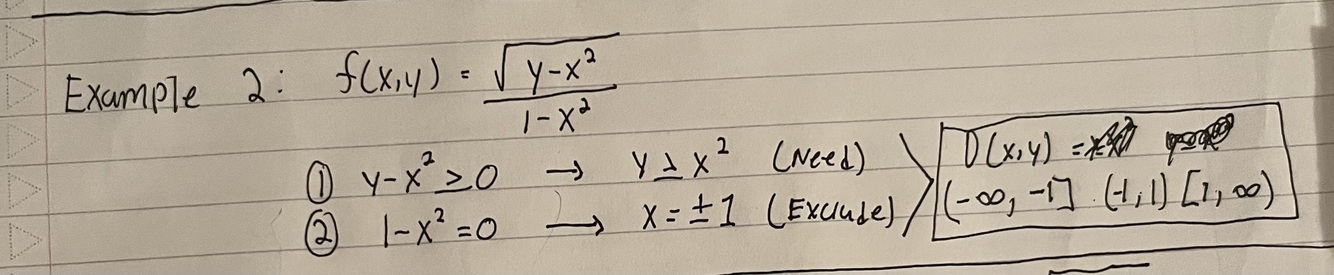 Example 2: f(x,y) = √(y-x²) / (1-x²)
① y-x² ≥ 0 → y ≥ x² (Need)
② 1-x² = 0 → x = ±1 (Exclude)
D(x,y) =
(-∞, -1] (-1,1) [1, ∞)